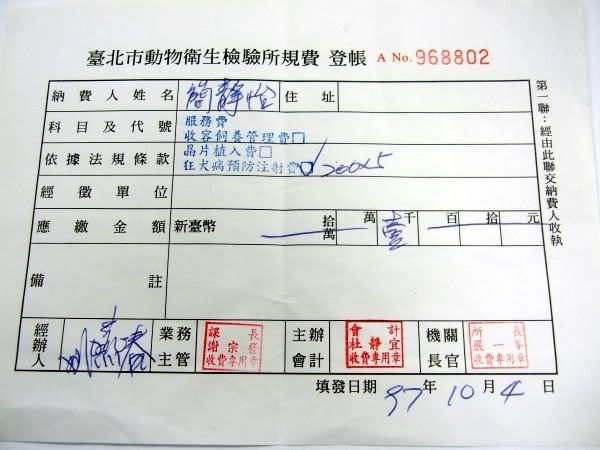 臺北市動物衛生檢驗所規費 登帳 A No. 968802
納費人姓名 簡靜怡 住址
科目及代號 服務費
收容飼養管理費□
依據法規條款 晶片植入費□
狂犬病預防注射費☑ 200x5
經徵單位
應繳金額 新臺幣 拾萬 萬 壹千 百 拾 元
備註
經辦人 業務主管 課長 謝宗發 收費專用章 主辦會計 會計 杜靜宜 收費專用章 機關長官 所長 嚴一峯 收費專用章
填發日期 97年10月4日
第一聯：經由此聯交納費人收執